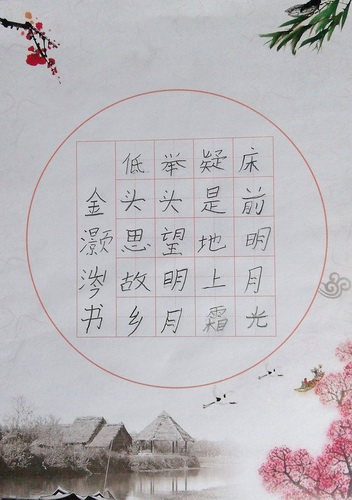 床前明月光
疑是地上霜
举头望明月
低头思故乡
金灏涔书